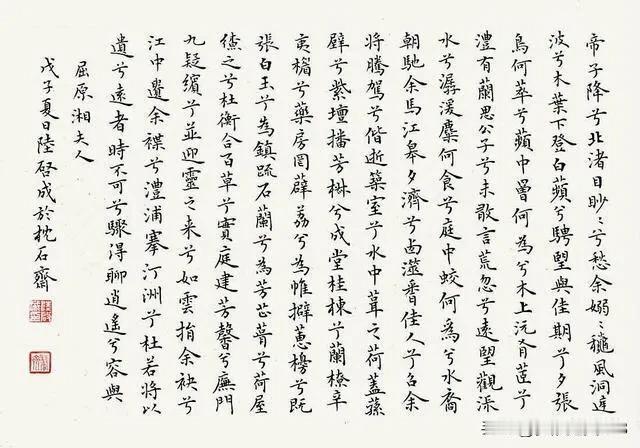 帝子降兮北渚目眇〻兮愁余嫋〻龝風洞庭
波兮木葉下登白蘋兮騁望與佳期兮夕張
鳥何萃兮蘋中罾何為兮木上沅有茝兮
澧有蘭思公子兮未敢言荒忽兮遠望觀流
水兮潺湲麋何食兮庭中蛟何為兮水裔
朝馳余馬江皋夕濟兮卤澨佳人兮召余
將騰駕兮偕逝築室兮水中葺之荷蓋蓀
壁兮紫壇播芳椒兮成堂桂棟兮蘭橑辛
夷楣兮藥房罔薜荔兮為帷擗蕙櫋兮既
張白玉兮為鎮疏石蘭兮為芳芷葺兮荷屋
繚之兮杜衡合百草兮實庭建芳馨兮廡門
九疑繽兮並迎靈之来兮如雲捐余袂兮
江中遺余褋兮澧浦搴汀洲兮杜若將以
遺兮遠者時不可兮驟得聊逍遙兮容與
屈原湘夫人
戊子夏日陸啓成於枕石齋